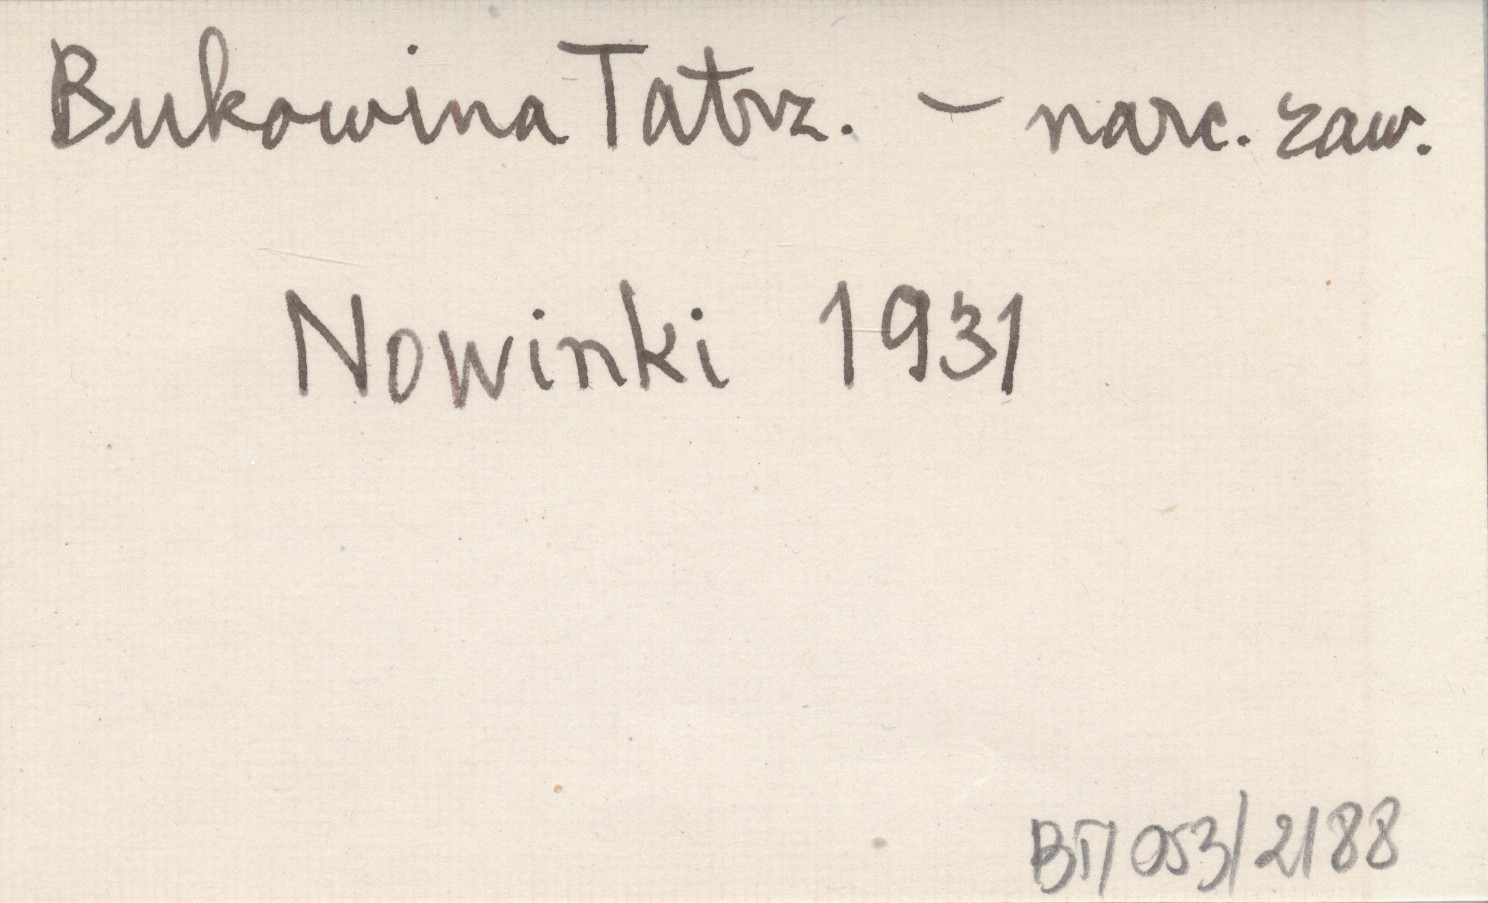 Bukowina Tatrz. – narc. zaw.
Nowinki 1931
BT/053/2/88